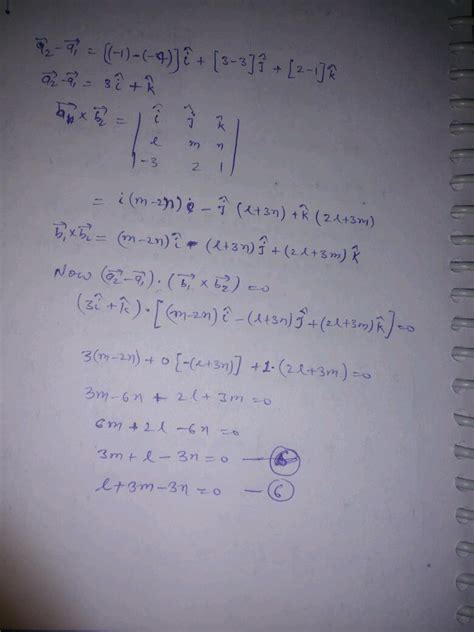 a⃗₂-a⃗₁ = [(-1)-(-4)]î + [3-3]ĵ + [2-1]k̂
a⃗₂-a⃗₁ = 3î + k̂
b⃗₁ × b⃗₂ = | î ĵ k̂ |
l m n
-3 2 1
= i(m-2n)i - ĵ(l+3n) + k̂(2l+3m)
b⃗₁×b⃗₂ = (m-2n)î - (l+3n)ĵ + (2l+3m)k̂
Now (a⃗₂-a⃗₁)·(b⃗₁ × b⃗₂) = 0
(3î + k̂)·[(m-2n)î - (l+3n)ĵ + (2l+3m)k̂] = 0
3(m-2n) + 0[-(l+3n)] + 1·(2l+3m) = 0
3m - 6n + 2l + 3m = 0
6m + 2l - 6n = 0
3m + l - 3n = 0
l + 3m - 3n = 0 — 6